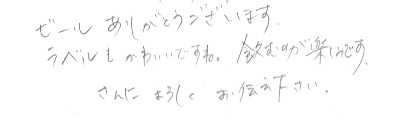 ビールありがとうございます.
ラベルもかわいいですね。飲むのが楽しみです.
さんによろしくお伝え下さい.